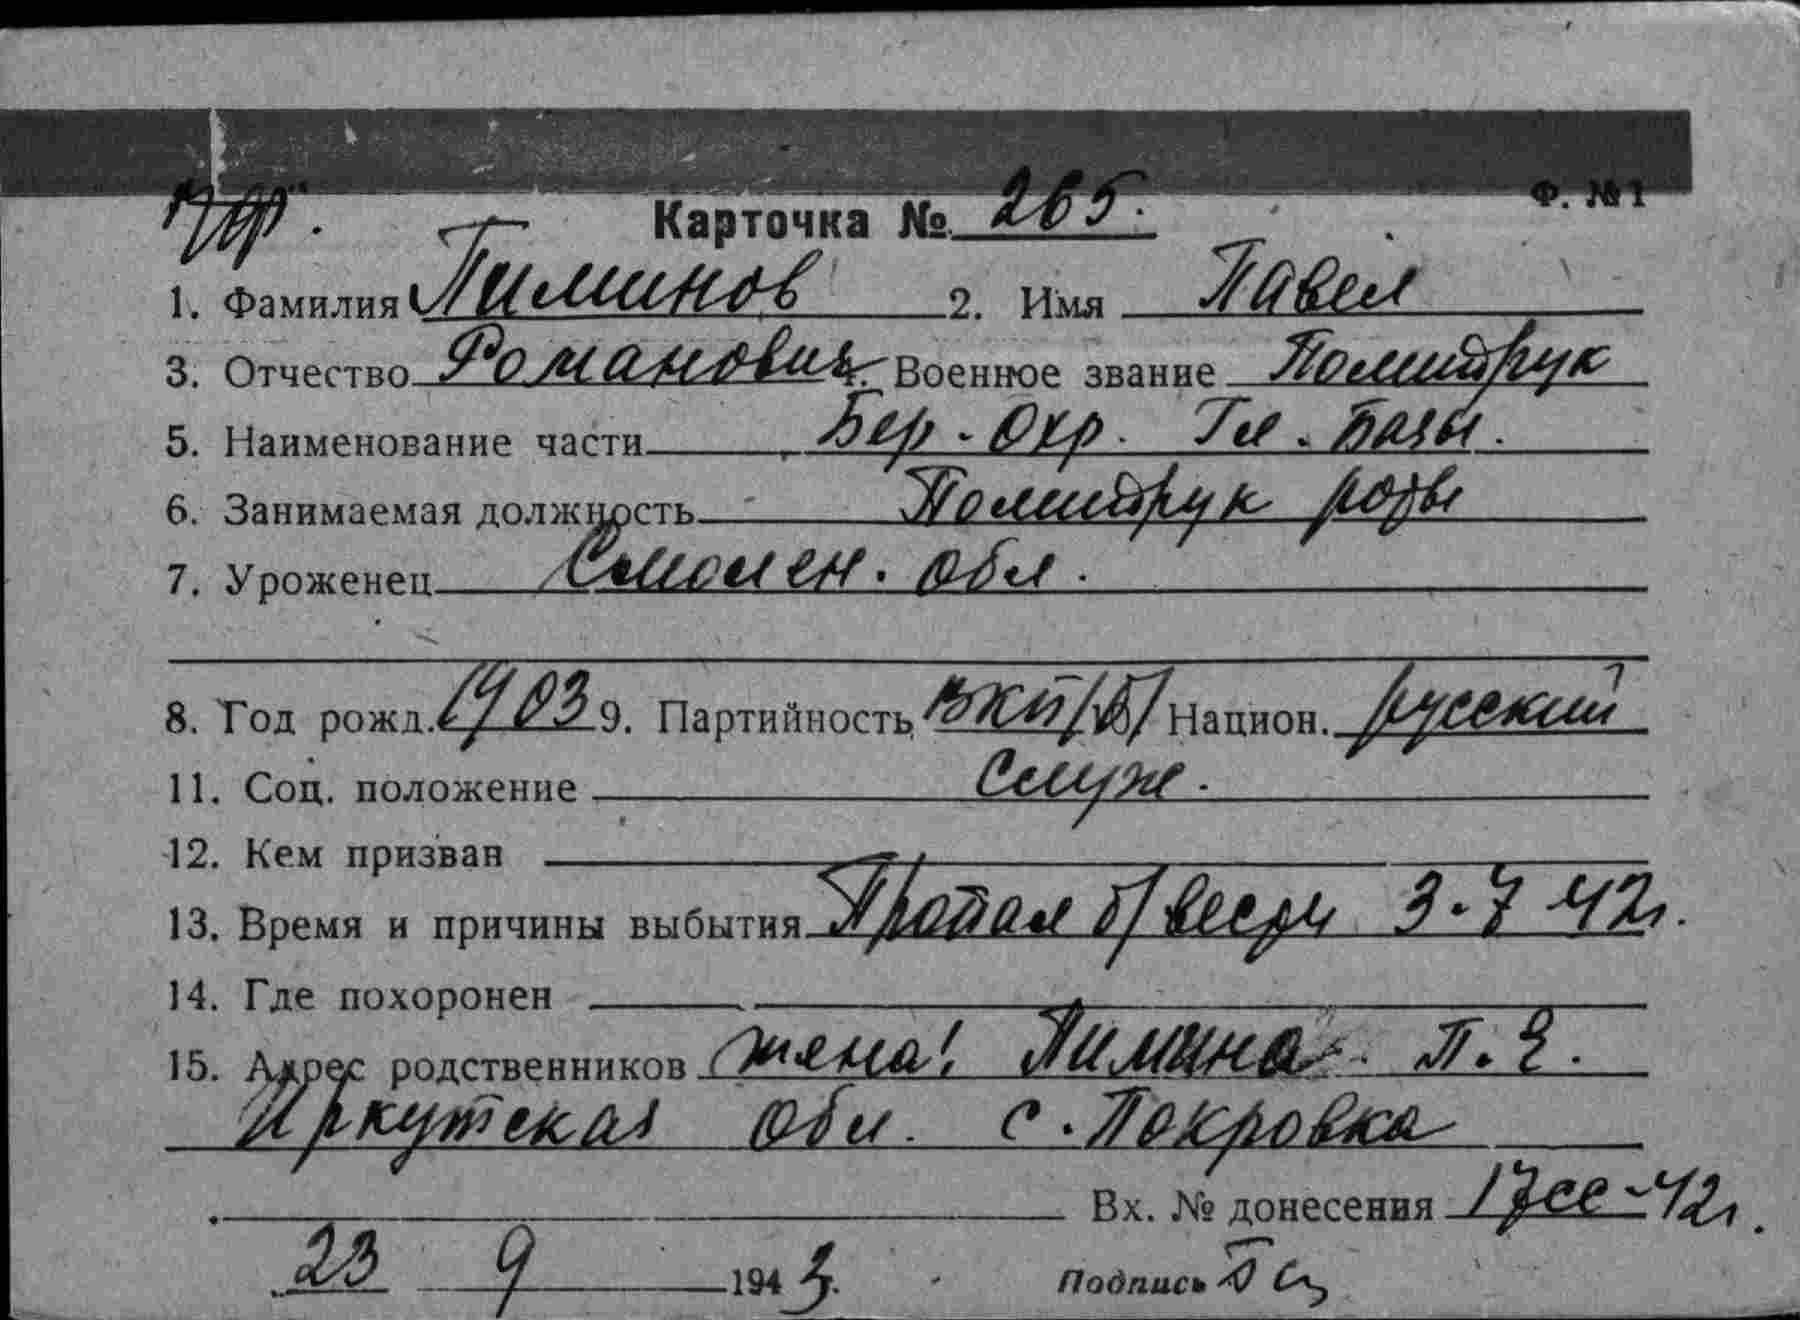 Ф. №1
Карточка № 265.
1. Фамилия Пиминов 2. Имя Павел
3. Отчество Романович 4. Военное звание Политрук
5. Наименование части Бер. Охр. Гл. Базы.
6. Занимаемая должность Политрук роты
7. Уроженец Смолен. обл.
8. Год рожд. 1903 9. Партийность ВКП/б/ Национ. русский
11. Соц. положение Служ.
12. Кем призван
13. Время и причины выбытия Пропал б/вести 3-7-42г.
14. Где похоронен
15. Адрес родственников жена: Пимина П. Я.
Иркутская обл. с. Покровка
Вх. № донесения 17сс-42г.
23 9 1943.
Подпись